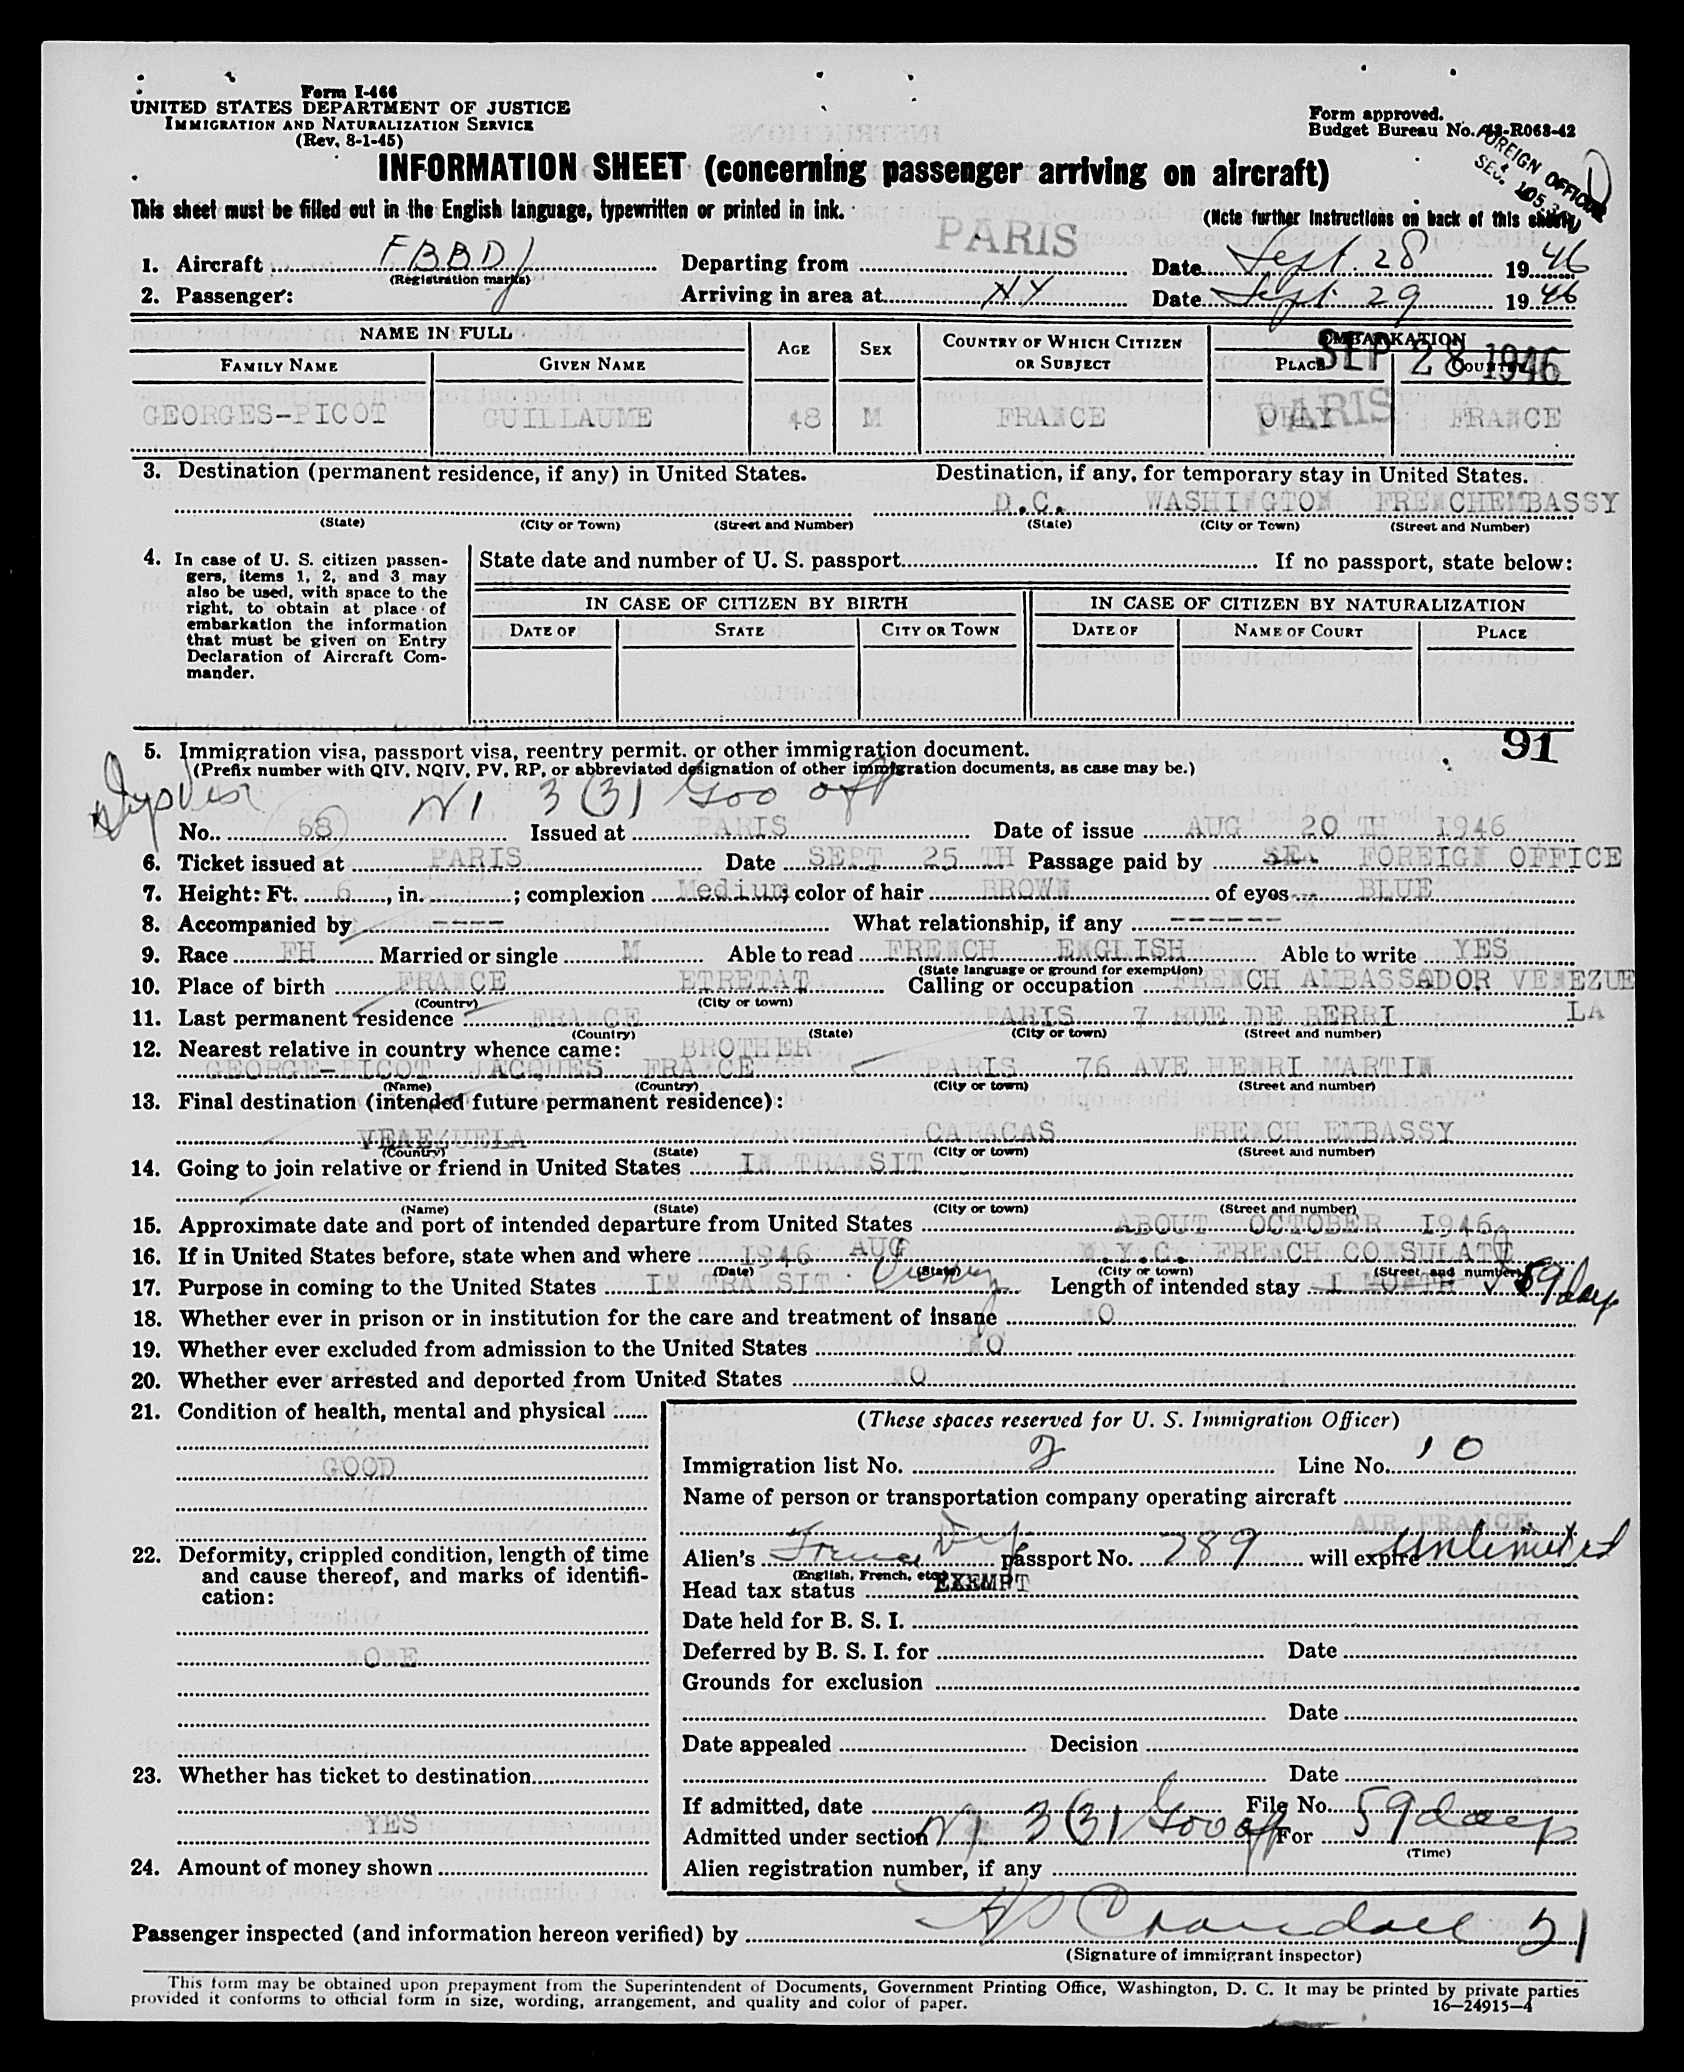 Form I-466
UNITED STATES DEPARTMENT OF JUSTICE
IMMIGRATION AND NATURALIZATION SERVICE
(Rev. 8-1-45)
Form approved.
Budget Bureau No. 43-R068-42
FOREIGN OFFICE
INFORMATION SHEET (concerning passenger arriving on aircraft)
This sheet must be filled out in the English language, typewritten or printed in ink.
(Note further instructions on back of this sheet)
1. Aircraft FBBDJ Departing from PARIS Date Sept 28 1946
(Registration marks)
2. Passenger: Arriving in area at NY Date Sept 29 1946
NAME IN FULL
AGE SEX COUNTRY OF WHICH CITIZEN OR SUBJECT EMBARKATION
FAMILY NAME GIVEN NAME PLACE COUNTRY
SEP 28 1946
GEORGES-PICOT GUILLAUME 48 M FRANCE ORLY FRANCE
PARIS
3. Destination (permanent residence, if any) in United States. Destination, if any, for temporary stay in United States.
D.C. WASHINGTON FRENCHEMBASSY
(State) (City or Town) (Street and Number) (State) (City or Town) (Street and Number)
4. In case of U. S. citizen passengers, items 1, 2, and 3 may also be used, with space to the right, to obtain at place of embarkation the information that must be given on Entry Declaration of Aircraft Commander.
State date and number of U. S. passport If no passport, state below:
IN CASE OF CITIZEN BY BIRTH IN CASE OF CITIZEN BY NATURALIZATION
DATE OF STATE CITY OR TOWN DATE OF NAME OF COURT PLACE
91
5. Immigration visa, passport visa, reentry permit, or other immigration document.
(Prefix number with QIV, NQIV, PV, RP, or abbreviated designation of other immigration documents, as case may be.)
3(3) Gov off
No. 68 Issued at PARIS Date of issue AUG 20 TH 1946
6. Ticket issued at PARIS Date SEPT 25 TH Passage paid by FOREIGN OFFICE
7. Height: Ft. 6, in. ; complexion Medium; color of hair BROWN of eyes BLUE
8. Accompanied by ---- What relationship, if any ------
9. Race FH Married or single M Able to read FRENCH ENGLISH Able to write YES
(State language or ground for exemption)
10. Place of birth FRANCE ETRETAT Calling or occupation FRENCH AMBASSADOR VENEZUE
LA
(Country) (City or town)
11. Last permanent residence FRANCE PARIS 7 RUE DE BERRI
(Country) (State) (City or town) (Street and number)
12. Nearest relative in country whence came: BROTHER
GEORGE-PICOT JACQUES FRANCE PARIS 76 AVE HENRI MARTIN
(Name) (Country) (City or town) (Street and number)
13. Final destination (intended future permanent residence):
VENEZUELA CARACAS FRENCH EMBASSY
(Country) (State) (City or town) (Street and number)
14. Going to join relative or friend in United States IN TRANSIT
(Name) (State) (City or town) (Street and number)
15. Approximate date and port of intended departure from United States ABOUT OCTOBER 1946
16. If in United States before, state when and where 1946 AUG N.Y.C. FRENCH CONSULATE
(Date) (State) (City or town) (Street and number)
17. Purpose in coming to the United States IN TRANSIT Length of intended stay 1 MONTH 59 days
18. Whether ever in prison or in institution for the care and treatment of insane NO
19. Whether ever excluded from admission to the United States NO
20. Whether ever arrested and deported from United States NO
21. Condition of health, mental and physical
GOOD
22. Deformity, crippled condition, length of time and cause thereof, and marks of identification:
NONE
23. Whether has ticket to destination
YES
24. Amount of money shown
(These spaces reserved for U. S. Immigration Officer)
Immigration list No. 2 Line No. 10
Name of person or transportation company operating aircraft
AIR FRANCE
Alien's passport No. 789 will expire Unlimited
(English, French, etc.)
Head tax status EXEMPT
Date held for B. S. I.
Deferred by B. S. I. for Date
Grounds for exclusion
Date
Date appealed Decision
Date
If admitted, date File No.
Admitted under section 3(3) Gov off For 59 days
(Time)
Alien registration number, if any
Passenger inspected (and information hereon verified) by
(Signature of immigrant inspector)
This form may be obtained upon prepayment from the Superintendent of Documents, Government Printing Office, Washington, D. C. It may be printed by private parties
provided it conforms to official form in size, wording, arrangement, and quality and color of paper.
16—24915-4